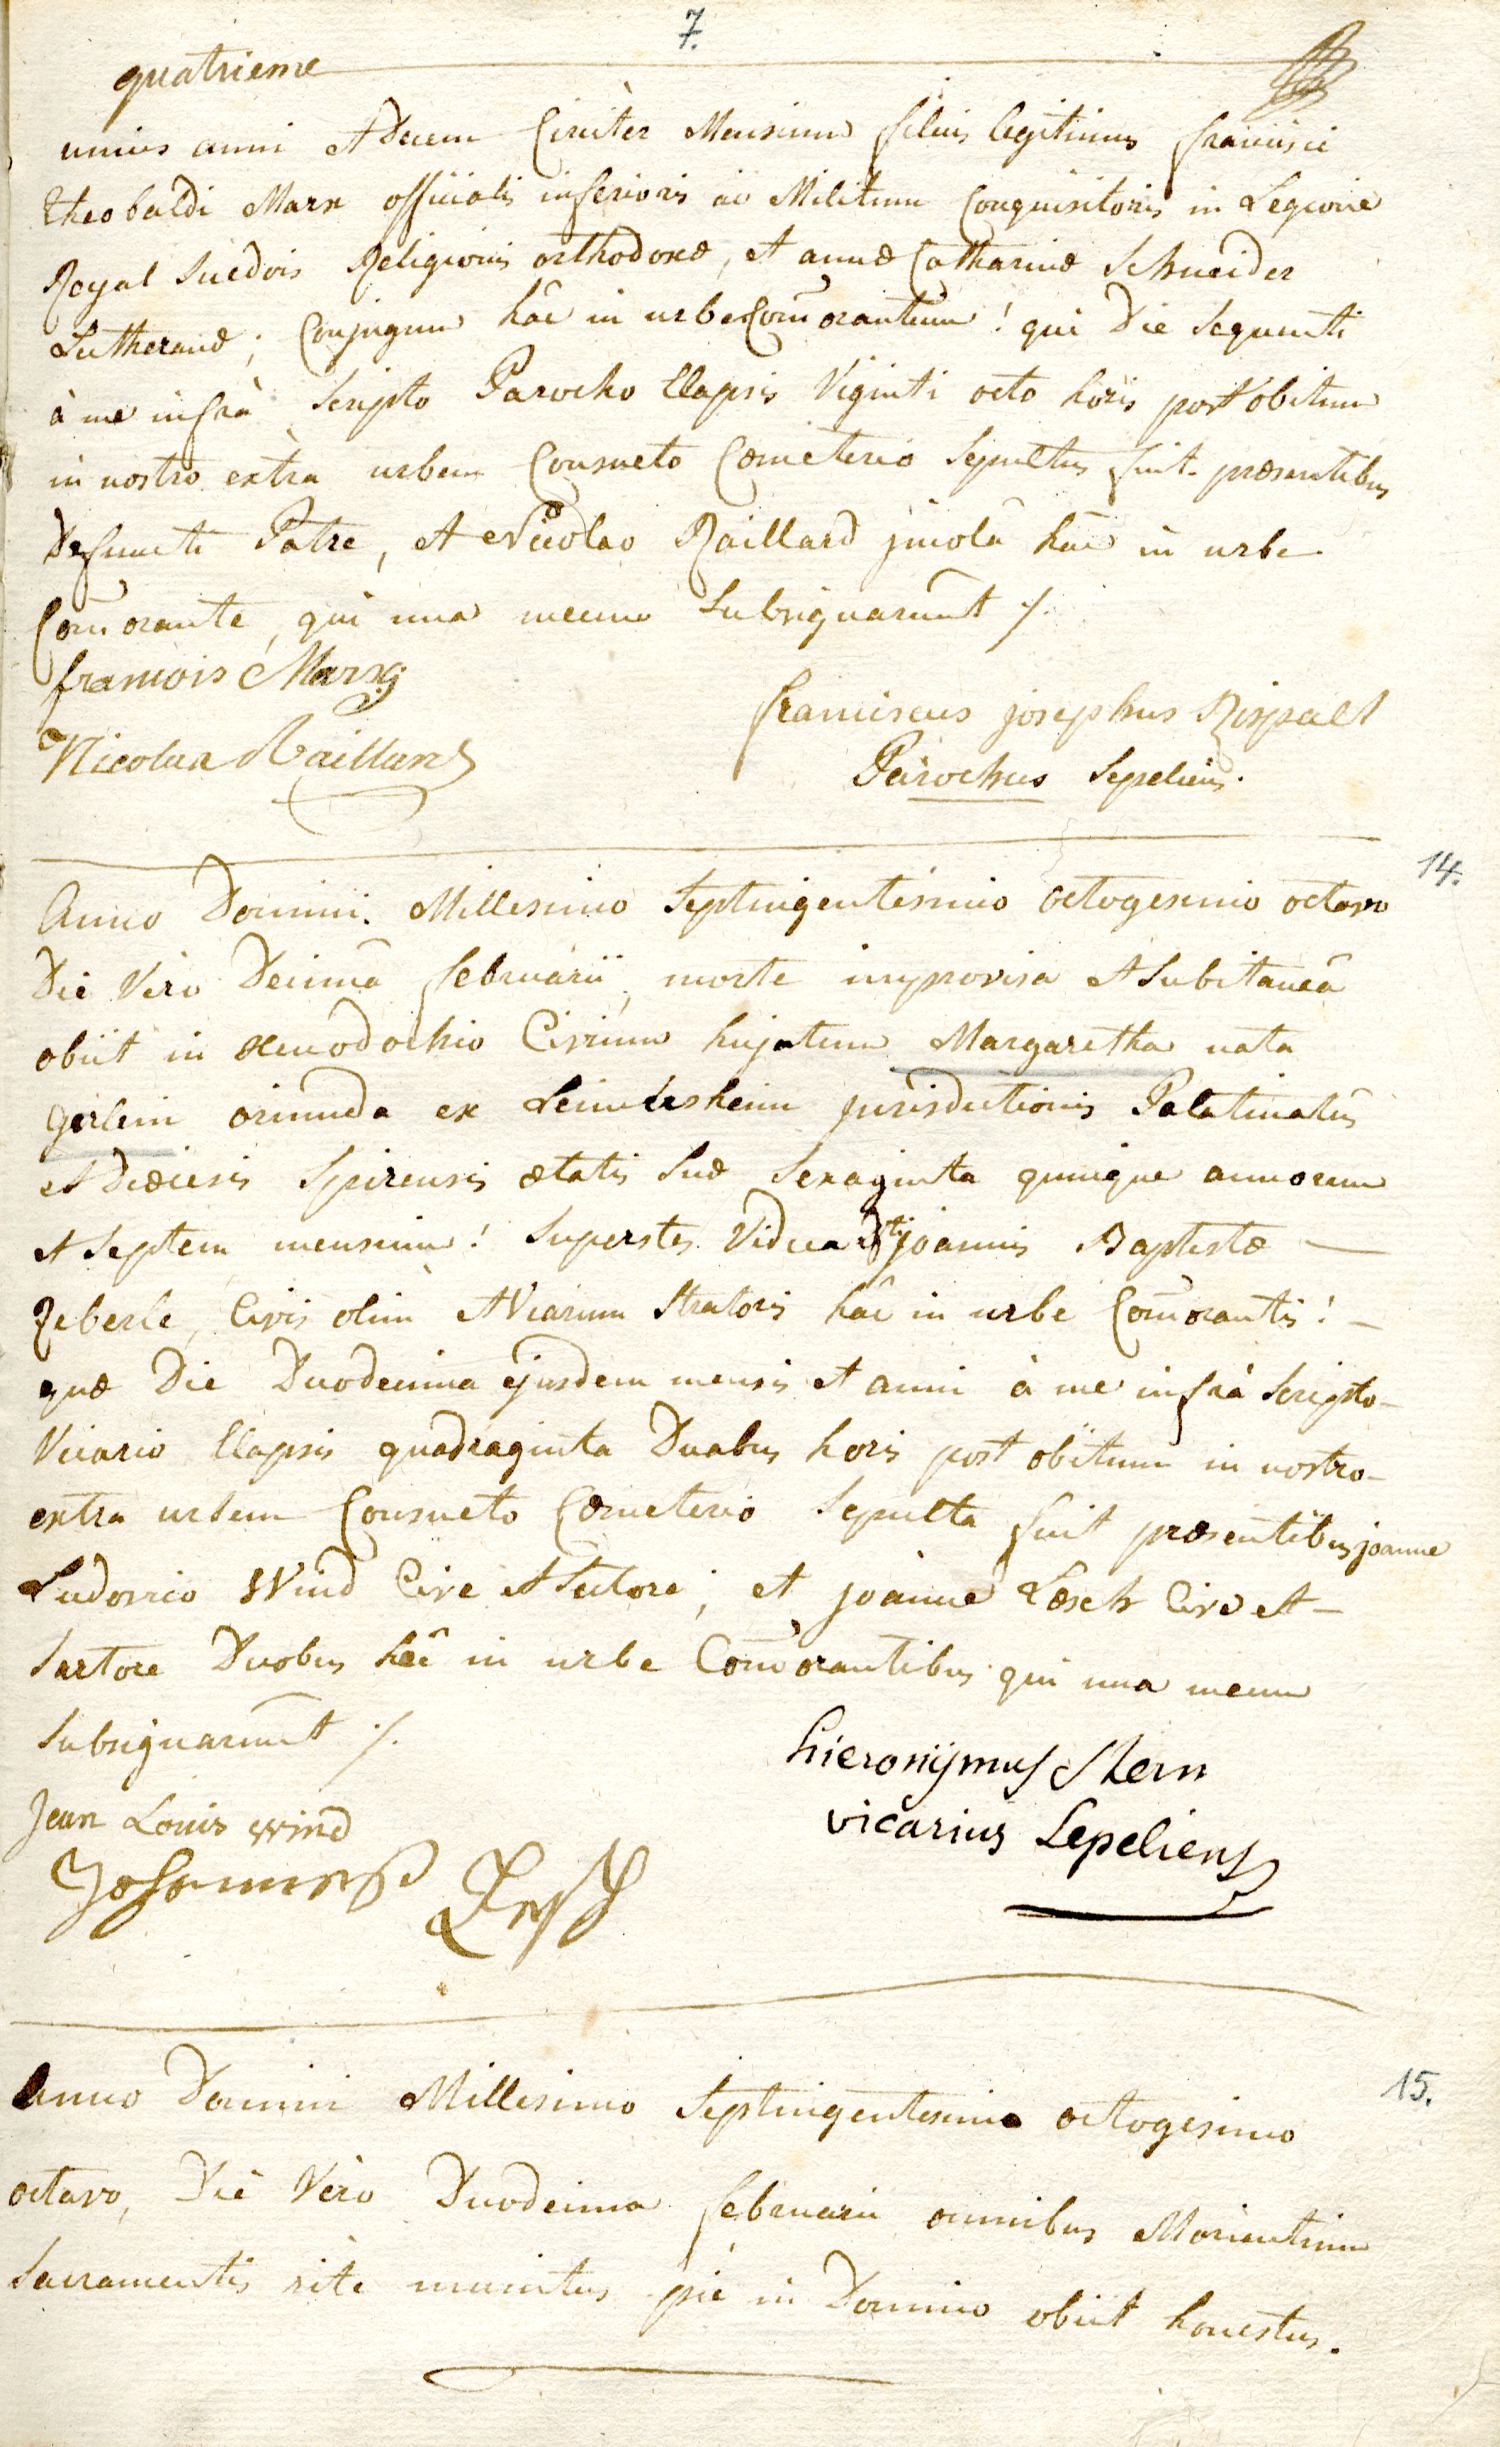 7.
quatrieme
unius anni et Decem Circitèr Mensium filius legitimus francisci
theobaldi Marx officialis inferioris ac Militum Conquisitoris in Legione
Royal Suedois Religionis orthodoxæ, et annæ Catharinæ Schneider
Lutheranæ; Conjugum hâc in urbe Com̄orantium! qui Die Sequenti
à me infrà Scripto Parocho Elapsis Viginti octo horis post obitum
in nostro extra urbem Consueto Cœmeterio Sepultus fuit præsentibus
Defuncti Patre, et Nicolao Raillard jncolâ hâc in urbe
Com̄orante, qui una mecum Subsignarunt ./.
francois Marx
Nicolas Raillard
franciscus josephus Rispalt
Parochus Sepeliens.
14.
Anno Domini Millesimo Septingentesimo octogesimo octavo
Die Vero Decimâ februarii, morte improvisa et Subitaneâ
obiit in xenodochio Civium hujatum Margaretha nata
gerlein oriunda ex Leimersheim jurisdictionis Palatinatûs
et diœcesis Spirensis ætatis Suæ Sexaginta quinque annorum
et Septem mensium! Superstes Vidua dfti joannis Baptistæ —
Reberle, Civis olim et Viarum Stratoris hâc in urbe Com̄orantis! —
quæ Die Duodecima ejusdem mensis et anni à me infrà Scripto —
Vicario Elapsis quadraginta Duabus horis post obitum in nostro —
extra urbem Consueto Cœmeterio Sepulta fuit præsentibus joanne
Ludovico Wind Cive et Sutore; et joanne Lœsch Cive et —
Sartore Duobus hâc in urbe Com̄orantibus qui una mecum
Subsignarunt ./.
Jean Louis wind
Johannes Lesch
hieronijmus Stern
vicarius Sepeliens
15.
Anno Domini Millesimo Septingentesimo octogesimo
octavo, Die Vèro Duodecima februarii omnibus Morientium
Sacramentis ritè munitus piè in Domino obiit honestus.